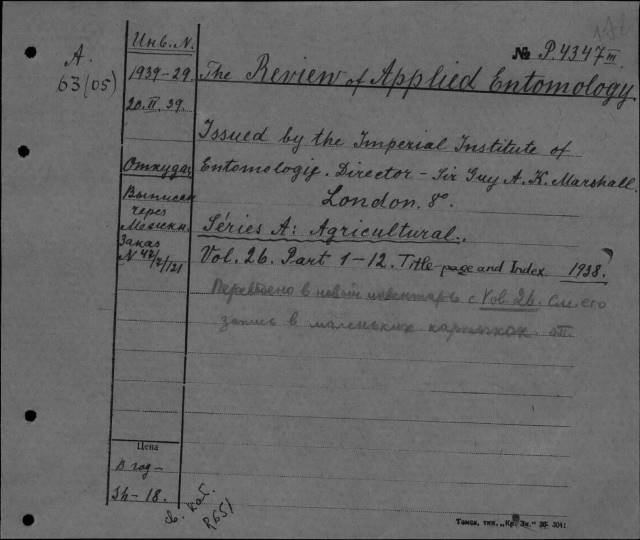 А.
63(05)
Инв. N.
1939-29.
20.II.39.
Откуда
Выписан
через
Межкн.
Заказ
N 42/7/121
№ P.4347 III
The Review of Applied Entomology.
Issued by the Imperial Institute of
Entomologie. Director - Sir Guy A. K. Marshall.
London. 8°.
Séries A: Agricultural.
Vol. 26. Part 1-12. Title-page and Index 1938.
Переведено в новый инвентарь с Vol. 26. См. его
запись в маленьких карточках
Цена
В год -
Sh-18.
св. кат.
R651
Томск, тип. „Кр. Зн." 3041